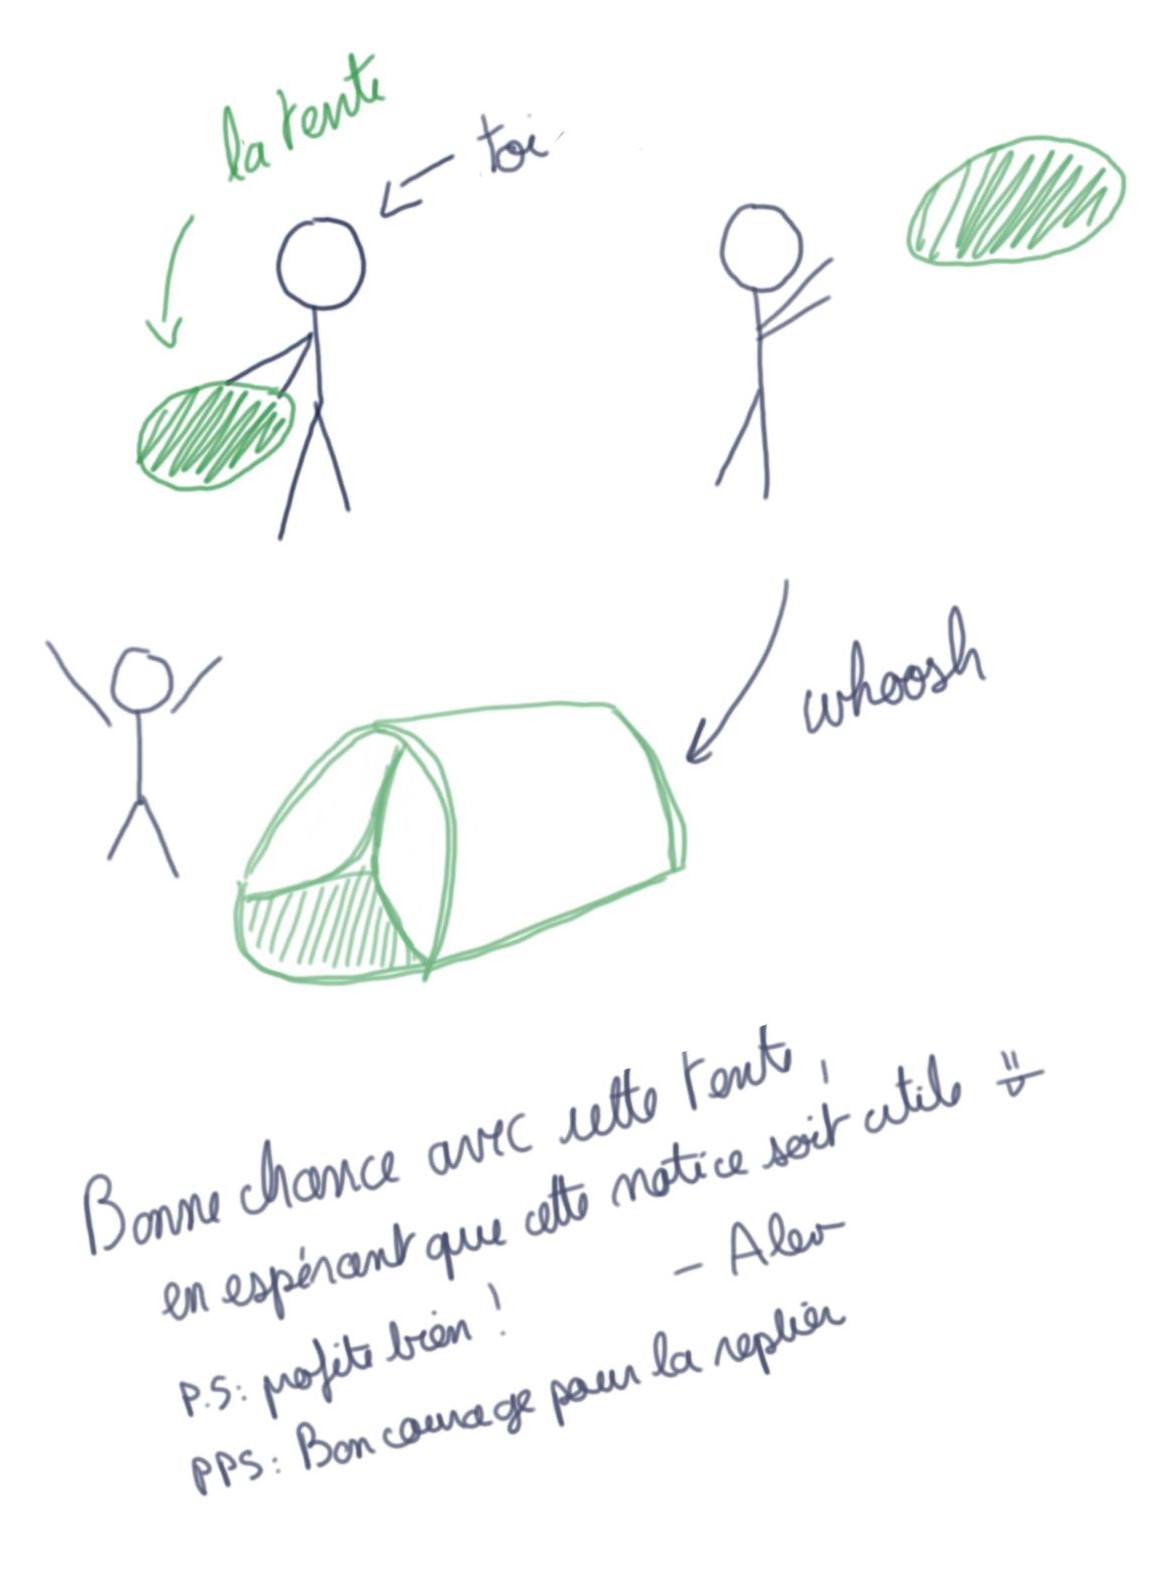 la tente
toi
whoosh
Bonne chance avec cette tente,
en espérant que cette notice soit utile
- Alex
P.S: profite bien !
PPS: Bon courage pour la replier